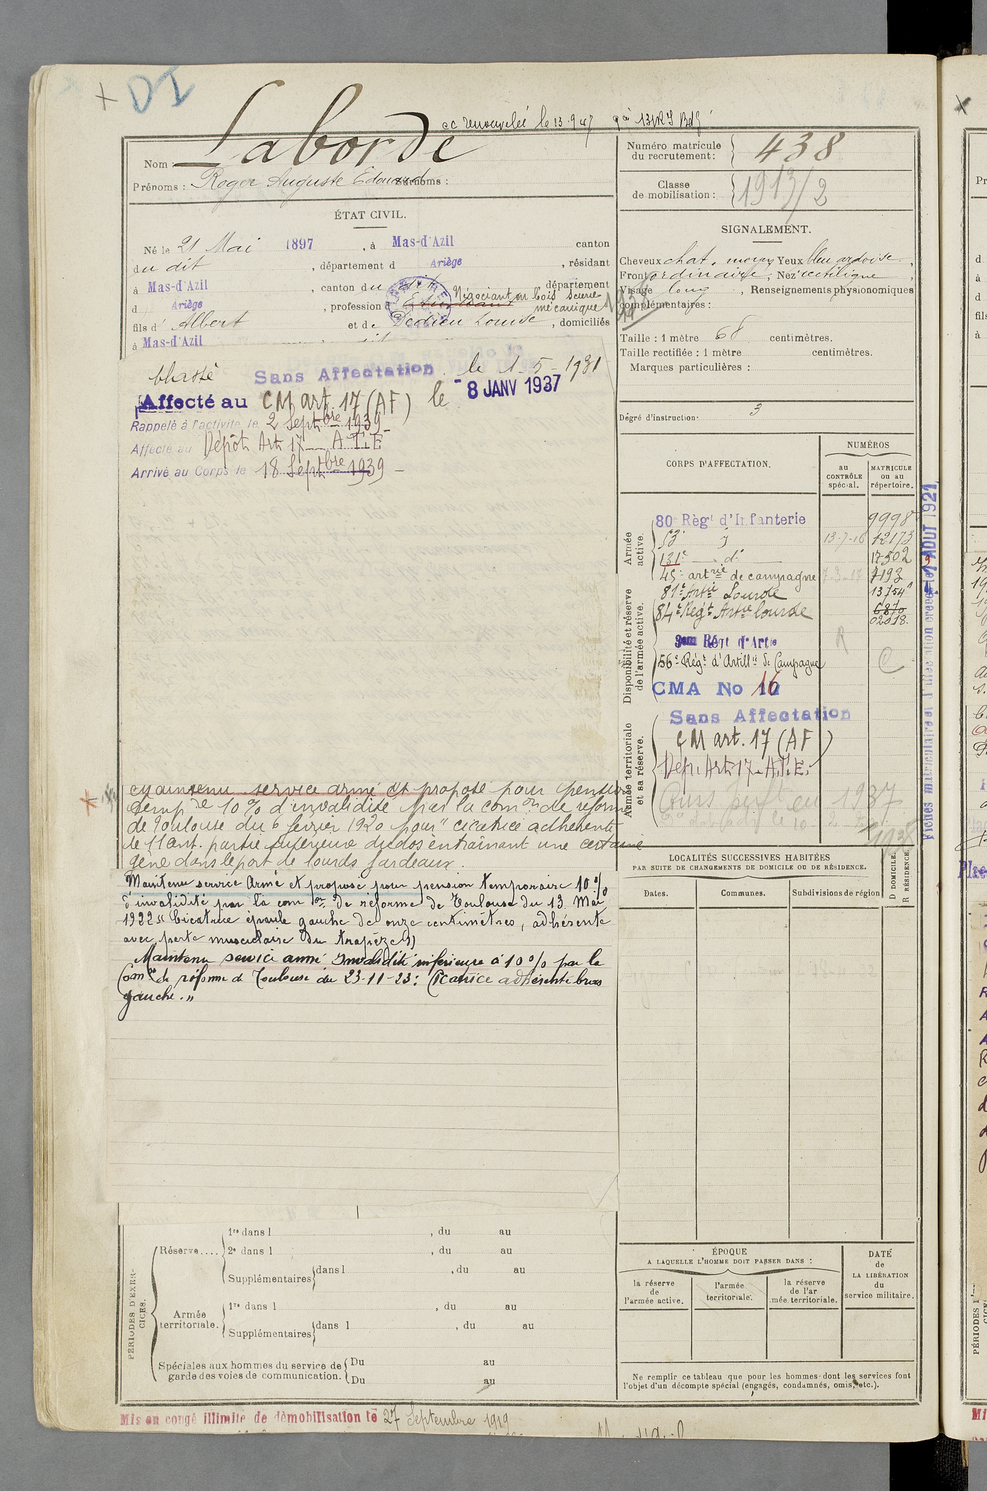 DI
cc renouvelée le 13-9-27
Laborde
Nom
Prénoms : Roger Auguste Edouard Surnoms :
ÉTAT CIVIL.
Né le 21 Mai 1897, à Mas-d'Azil canton
du dit, département d Ariège, résidant
à Mas-d'Azil, canton du dit département
d Ariège, profession d Etudiant Négociant en bois scierie mécanique
fils d' Albert et de Dedieu Louise, domiciliés
à Mas-d'Azil
Classé Sans Affectation le 1-5-1931
Affecté au CM art. 17 (AF) le - 8 JANV 1937
Rappelé à l'activité le 2 Septbre 1939
Affecté au Dépôt Art 17 A.T.E
Arrivé au Corps le 18 Septbre 1939 -
Maintenu service armé et proposé pour pension
temp re 10 % d'invalidité par la comon de réforme
de Toulouse du 6 février 1920 pour "cicatrice adhérente
de 11 cent. partie supérieure du dos entraînant une certaine
gêne dans le port de lourds fardeaux.
Maintenu service Armé et proposé pour pension temporaire 10 %
d'invalidité par la com on de réforme de Toulouse du 13 Mai
1922 "Cicatrice épaule gauche de onze centimètres, adhérente
avec perte musculaire du trapèze"
Maintenu service armé Invalidité inférieure à 10 % par la
Com on de réforme de Toulouse du 23-11-23: Cicatrice adhérente bras
gauche."
PÉRIODES D'EXERCICES.
Réserve....
1re dans l , du au
2e dans l , du au
Supplémentaires dans l , du au
Armée territoriale.
1re dans l , du au
Supplémentaires dans l , du au
Spéciales aux hommes du service de garde des voies de communication.
Du au
Du au
Mis en congé illimité de démobilisation le 27 Septembre 1919
Numéro matricule du recrutement : 438
Classe de mobilisation : 1913/2
SIGNALEMENT.
Cheveux chat. moyen Yeux bleu ardoise,
Front ordinaire, Nez rectiligne
Visage long, Renseignements physionomiques
complémentaires :
Taille : 1 mètre 68 centimètres.
Taille rectifiée : 1 mètre centimètres.
Marques particulières :
Degré d'instruction: 3
CORPS D'AFFECTATION.
NUMÉROS
au CONTRÔLE spécial.
MATRICULE ou au répertoire.
Armée active.
80e Régt d'Infanterie 9998
53e d 13-7-16 12173
131e d° 17502
45e artrie de campagne 7193
Disponibilité et réserve de l'armée active.
81e Artie Lourde 13754
84e Régt Artie lourde 6870
02018
56e Régt d'Artillie de Campagne
CMA No 16
Armée territoriale et sa réserve.
Sans Affectation
CM art. 17 (AF)
Dép. Art 17 A.T.E.
Fiches matriculaire et d'affectation créées le AOUT 1921
LOCALITÉS SUCCESSIVES HABITÉES
PAR SUITE DE CHANGEMENTS DE DOMICILE OU DE RÉSIDENCE.
Dates.
Communes.
Subdivisions de région
D DOMICILE.
R RÉSIDENCE.
ÉPOQUE
A LAQUELLE L'HOMME DOIT PASSER DANS :
la réserve de l'armée active.
l'armée territoriale.
la réserve de l'armée territoriale.
DATE de LA LIBÉRATION du service militaire.
Ne remplir ce tableau que pour les hommes dont les services font
l'objet d'un décompte spécial (engagés, condamnés, omis, etc.).